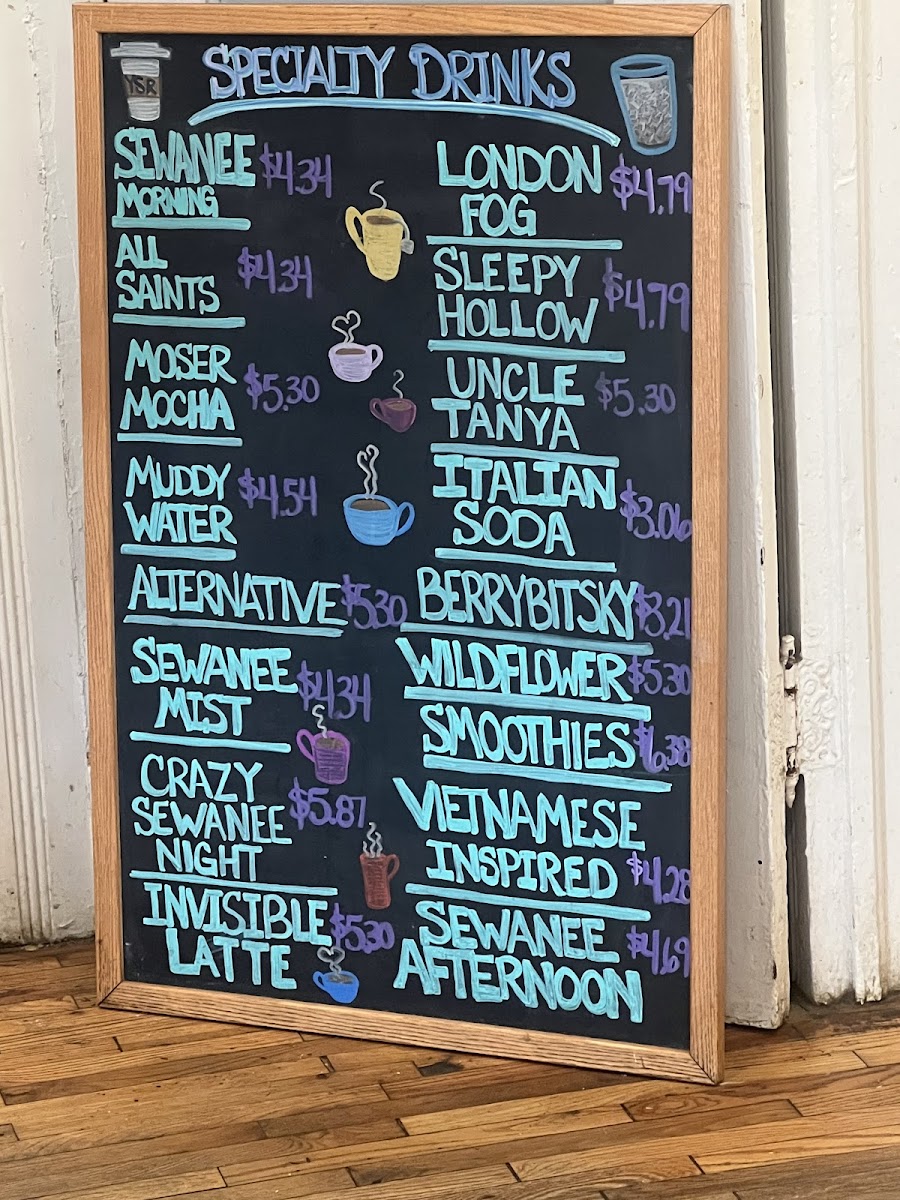 YSR
SPECIALTY DRINKS
SEWANEE $4.34
MORNING
ALL
SAINTS $4.34
MOSER
MOCHA $5.30
MUDDY
WATER $4.54
ALTERNATIVE $5.30
SEWANEE
MIST $4.34
CRAZY
SEWANEE $5.87
NIGHT
INVISIBLE
LATTE $5.30
LONDON
FOG $4.79
SLEEPY
HOLLOW $4.79
UNCLE
TANYA $5.30
ITALIAN
SODA $3.06
BERRYBITSKY $3.21
WILDFLOWER $5.30
SMOOTHIES $6.38
VIETNAMESE
INSPIRED $4.28
SEWANEE $4.69
AFTERNOON